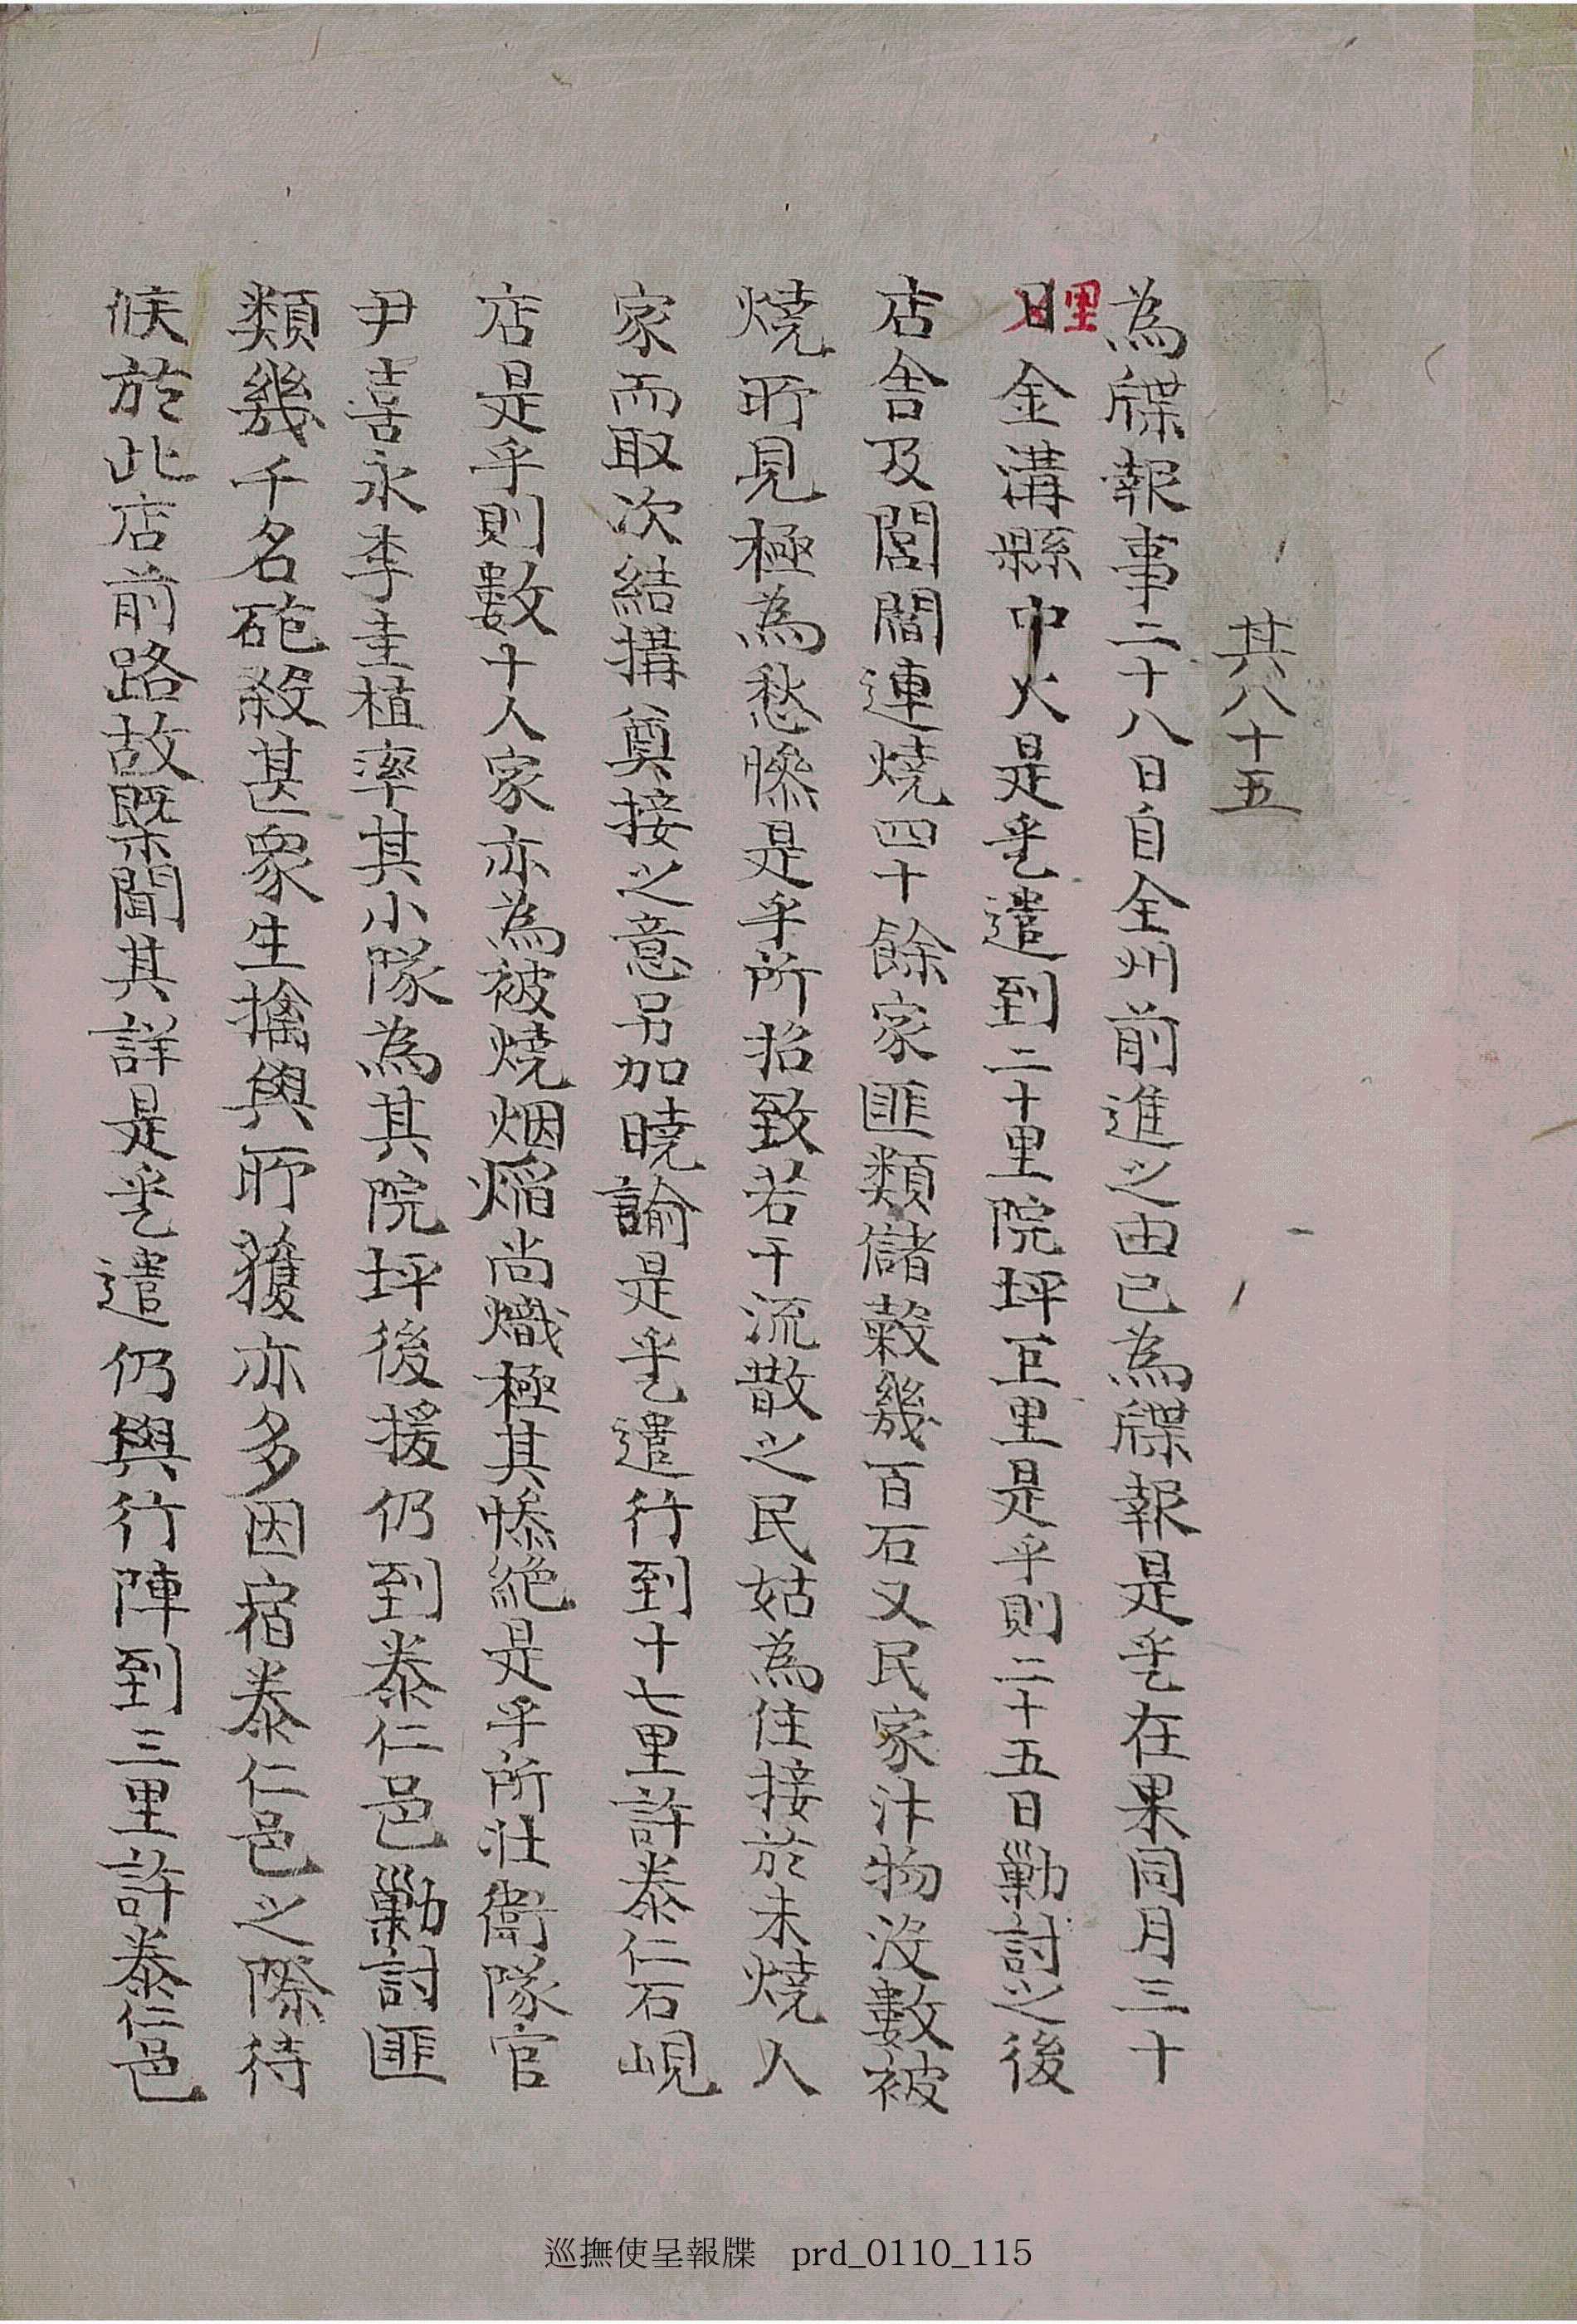 其八十五
為牒報事二十八日自全州前進之由已為牒報是乎乭在果同月三十
日里金溝縣中火是乎乭遣到二十里院坪巨里是乎則二十五日勦討之後
店舍及閭閻連燒四十餘家匪類儲穀幾百石又民家汁物沒數被
燒所見極為愁慘是乎所招致若干流散之民姑為住接於未燒人
家而取次結搆奠接之意另加曉諭是乎乭遣行到十七里許泰仁石峴
店是乎則數十人家亦為被燒烟焰尚熾極其慘絶是乎所壯衛隊官
尹喜永李圭植率其小隊為其院坪後援仍到泰仁邑勦討匪
類幾千名砲殺甚衆生擒與所獲亦多因宿泰仁邑之際待
候於此店前路故槩聞其詳是乎乭遣仍與行陣到三里許泰仁邑
巡撫使呈報牒 prd_0110_115